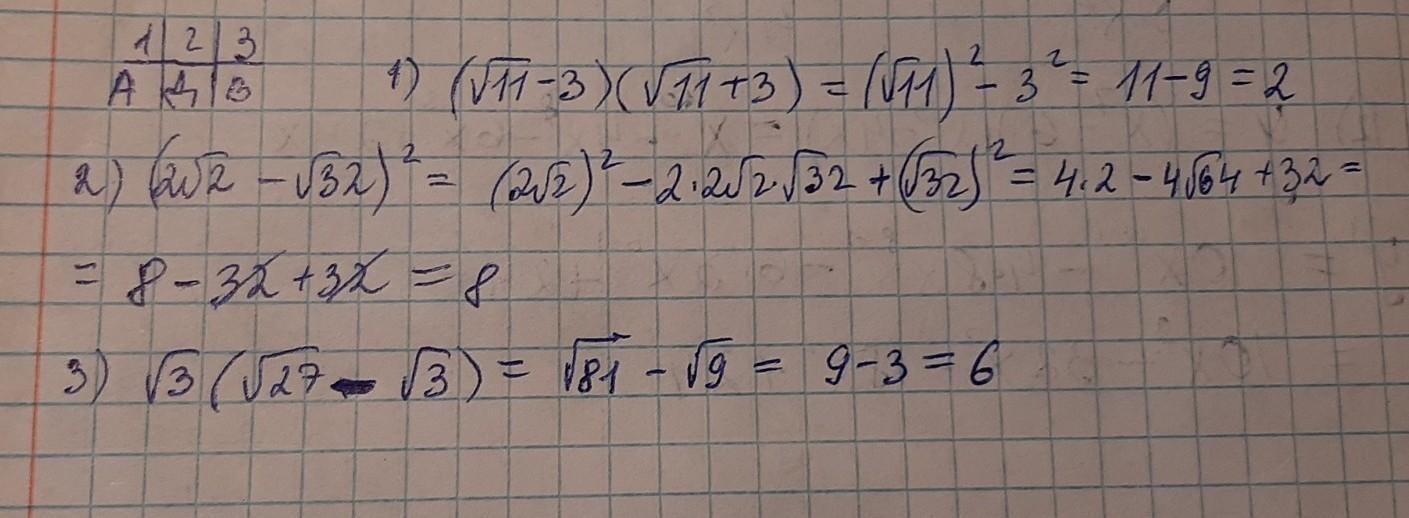 1 2 3
А Д В
1) (√11-3)(√11+3) = (√11)² - 3² = 11-9 = 2
2) (2√2 - √32)² = (2√2)² - 2·2√2·√32 + (√32)² = 4·2 - 4√64 + 32 =
= 8 - 32 + 32 = 8
3) √3 (√27 - √3) = √81 - √9 = 9-3 = 6